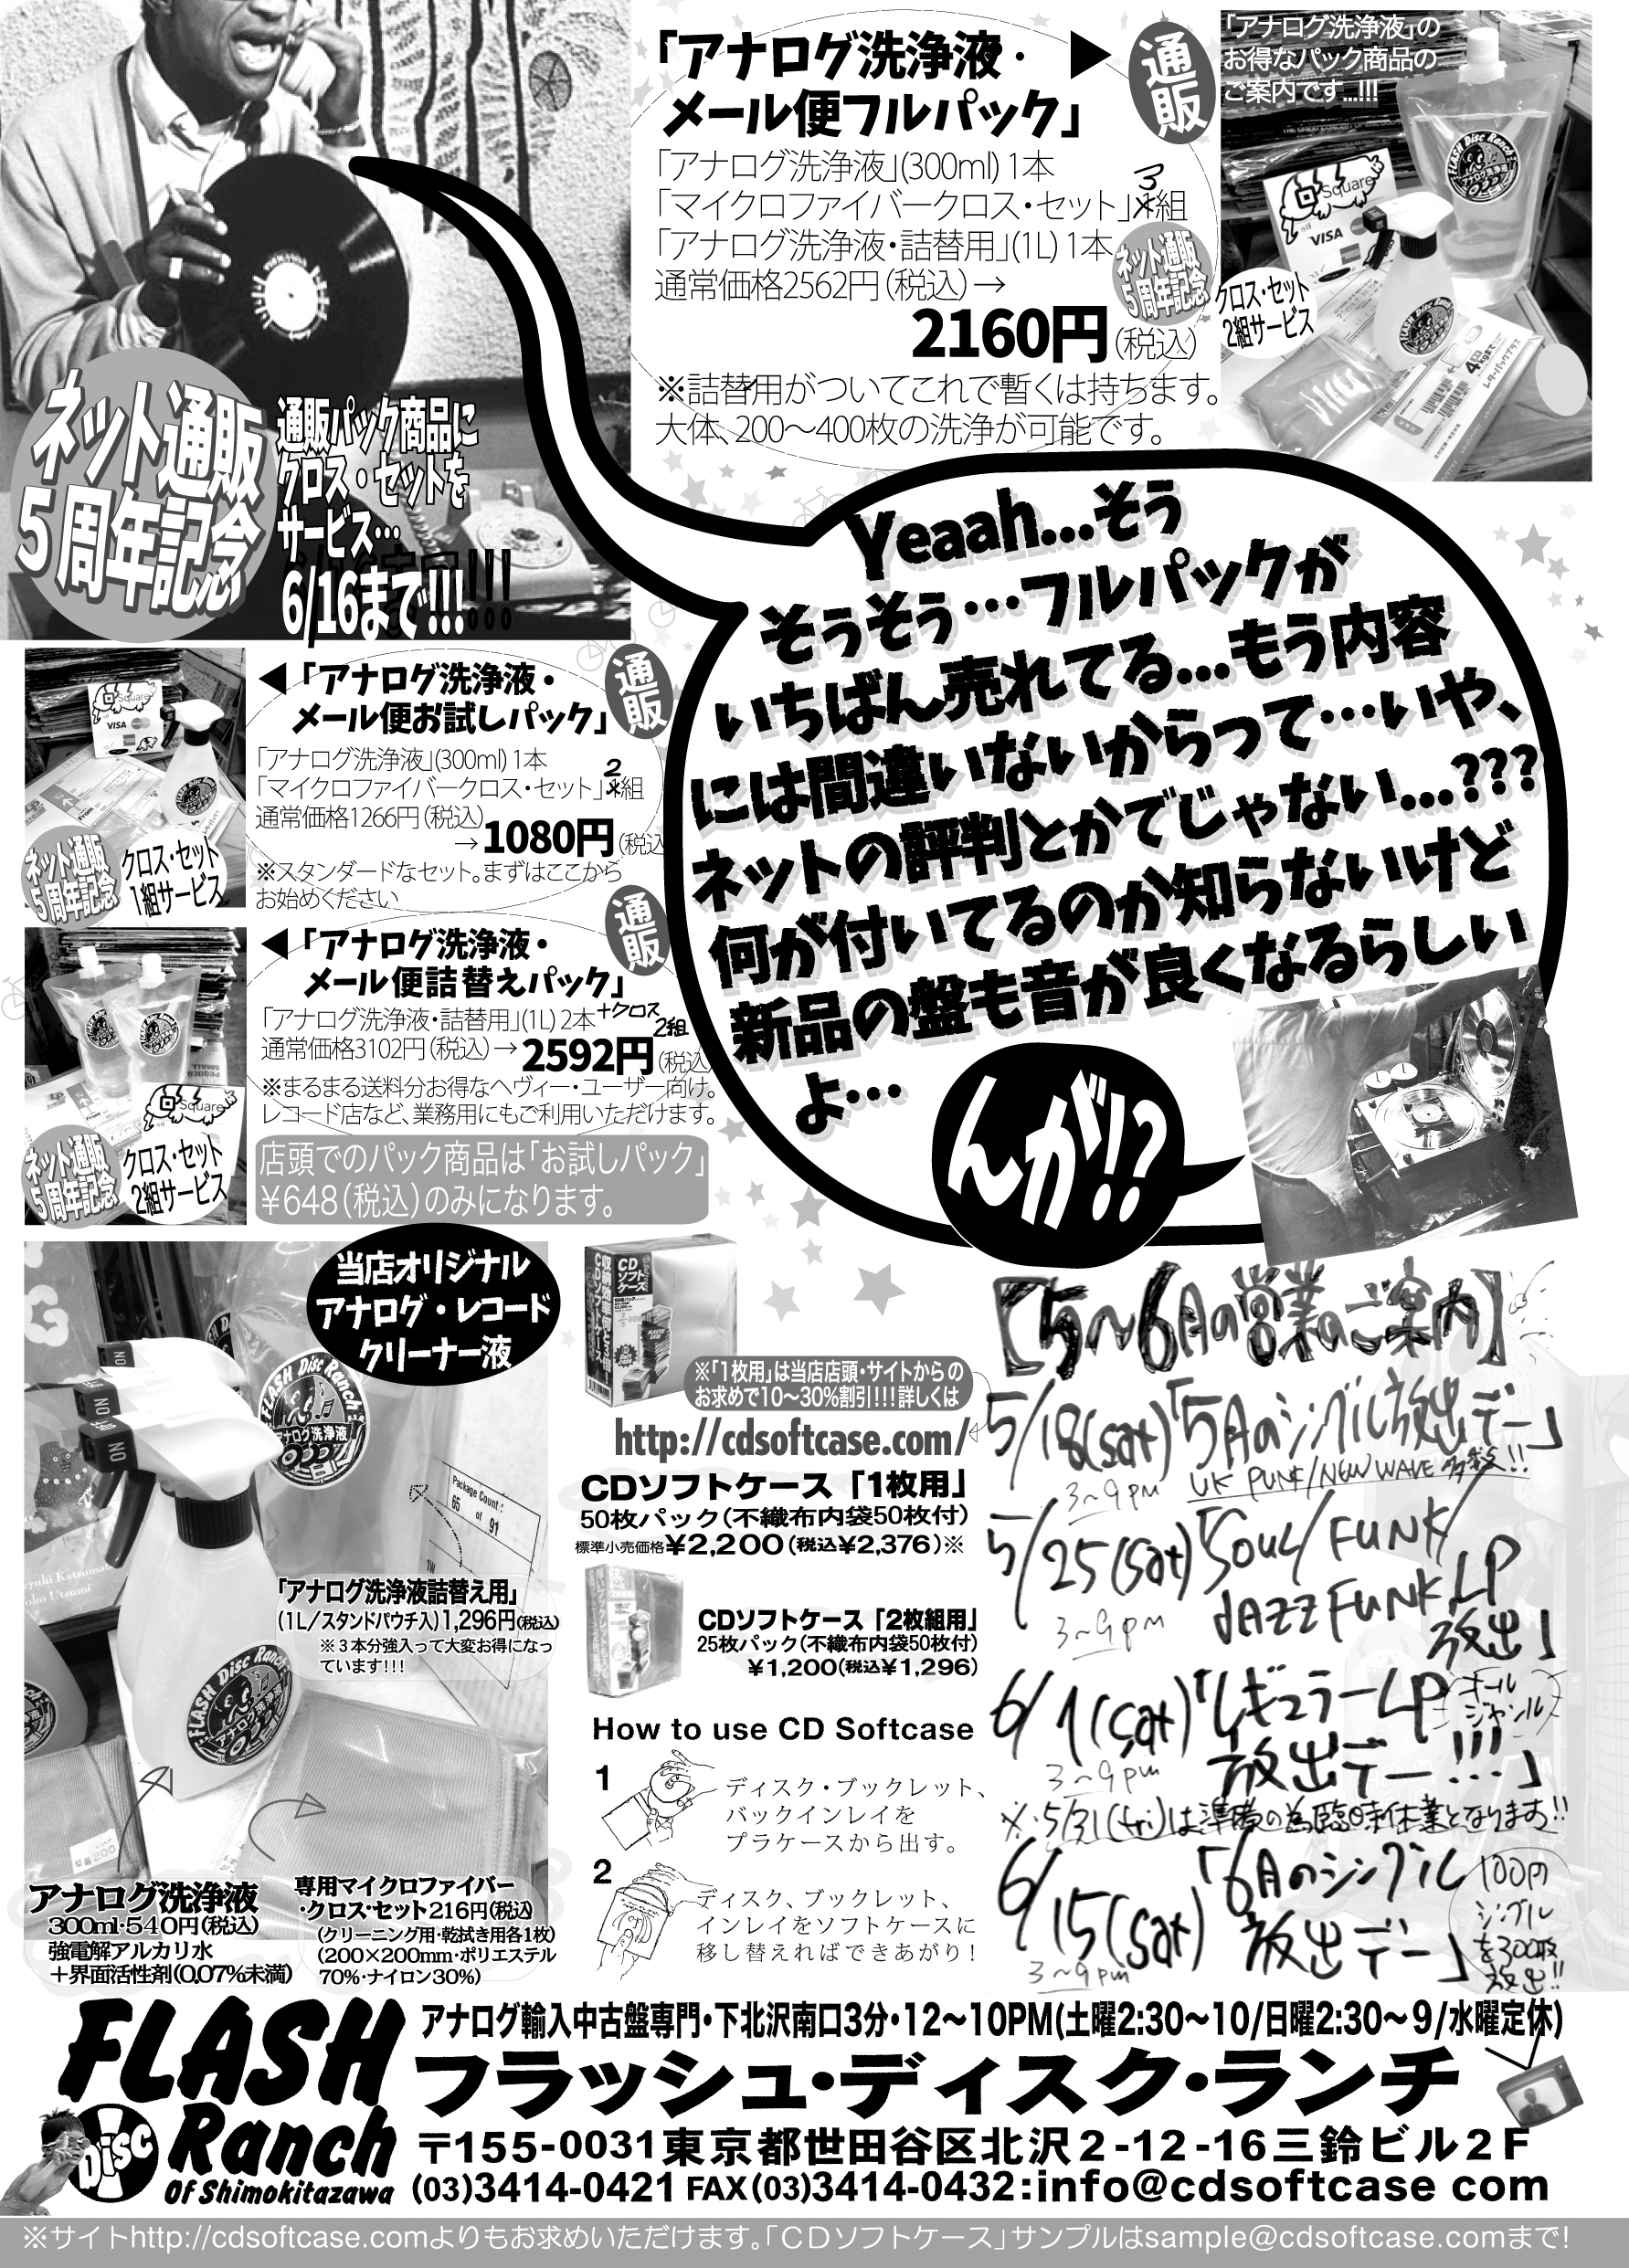 「アナログ洗浄液・
メール便フルパック」
通販
「アナログ洗浄液」(300ml) 1本
「マイクロファイバークロス・セット」3組
「アナログ洗浄液・詰替用」(1L) 1本
通常価格2562円（税込）→
2160円（税込）
ネット通販
5周年記念
※詰替用がついてこれで暫くは持ちます。
大体、200〜400枚の洗浄が可能です。
「アナログ洗浄液」の
お得なパック商品の
ご案内です...!!!
Square
VISA
FLASH Disc Ranch
アナログ洗浄液
クロス・セット
2組サービス
レターパックプラス
ネット通販
5周年記念
通販パック商品に
クロス・セットを
サービス…
6/16まで!!!
Yeaah...そう
そうそう…フルパックが
いちばん売れてる...もう内容
には間違いないからって…いや、
ネットの評判とかでじゃない...???
何が付いてるのか知らないけど
新品の盤も音が良くなるらしい
よ…
んが!?
◀「アナログ洗浄液・
メール便お試しパック」
通販
「アナログ洗浄液」(300ml) 1本
「マイクロファイバークロス・セット」2組
通常価格1266円（税込）
→1080円（税込
※スタンダードなセット。まずはここから
お始めください
Square
VISA
ネット通販
5周年記念
クロス・セット
1組サービス
◀「アナログ洗浄液・
メール便詰替えパック」
通販
「アナログ洗浄液・詰替用」(1L) 2本+クロス2組
通常価格3102円（税込）→2592円（税込）
※まるまる送料分お得なヘヴィー・ユーザー向け。
レコード店など、業務用にもご利用いただけます。
Square
ネット通販
5周年記念
クロス・セット
2組サービス
店頭でのパック商品は「お試しパック」
¥648（税込）のみになります。
当店オリジナル
アナログ・レコード
クリーナー液
FLASH Disc Ranch
アナログ洗浄液
Package Count:
65 of 91
「アナログ洗浄液詰替え用」
(1L/スタンドパウチ入) 1,296円(税込)
※3本分強入って大変お得になっ
ています!!!
アナログ洗浄液
300ml・540円(税込)
強電解アルカリ水
＋界面活性剤(0.07%未満)
専用マイクロファイバー
・クロス・セット216円(税込)
(クリーニング用・乾拭き用各1枚)
(200×200mm・ポリエステル
70%・ナイロン30%)
CD
ソフト
ケース
※「1枚用」は当店店頭・サイトからの
お求めで10〜30%割引!!!詳しくは
http://cdsoftcase.com/
CDソフトケース「1枚用」
50枚パック(不織布内袋50枚付)
標準小売価格¥2,200(税込¥2,376)※
CDソフトケース「2枚組用」
25枚パック(不織布内袋50枚付)
¥1,200(税込¥1,296)
How to use CD Softcase
1
ディスク・ブックレット、
バックインレイを
プラケースから出す。
2
ディスク、ブックレット、
インレイをソフトケースに
移し替えればできあがり！
【5〜6月の営業のご案内】
5/18(sat)「5月のシングル放出デー」
3〜9pm UK PUNK/NEW WAVE 多数!!
5/25(sat)「SOUL/FUNK/
JAZZ FUNK LP
放出」
3〜9pm
6/1(sat)「レギュラーLP
放出デー!!!」
オール
ジャンル
3〜9pm
※5/31(fri)は準備の為臨時休業となります!!
6/15(sat)「6月のシングル
放出デー」
3〜9pm
100円
シングル
を300枚
放出!!
FLASH
Disc
Ranch
Of Shimokitazawa
アナログ輸入中古盤専門・下北沢南口3分・12〜10PM(土曜2:30〜10/日曜2:30〜9/水曜定休)
フラッシュ・ディスク・ランチ
〒155-0031東京都世田谷区北沢2-12-16三鈴ビル2F
(03)3414-0421 FAX(03)3414-0432:info@cdsoftcase com
※サイトhttp://cdsoftcase.comよりもお求めいただけます。「CDソフトケース」サンプルはsample@cdsoftcase.comまで！